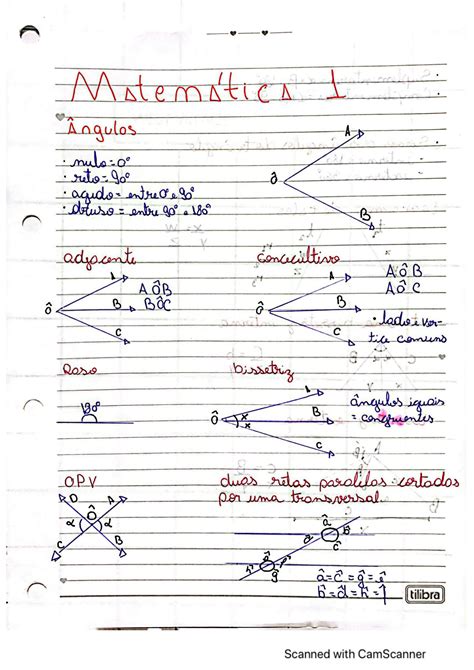 Matemática 1
Ângulos
• nulo = 0°
• reto = 90°
• agudo = entre 0° e 90°
• obtuso = entre 90° e 180°
A
ô
B
adjacente
A
ô
B
C
AÔB
BÔC
Concecultivo
A
ô
B
C
AÔB
AÔC
• lado e vér-
tice comuns
Raso
180°
bissetriz
A
Ô
x
x
B
C
ângulos iguais
= congruentes
OPV
D
A
Ô
α
α
C
B
duas retas paralelas cortadas
por uma transversal.
â
b̂
ĝ
â = ĉ = ĝ = ê
b̂ = d̂ = ĥ = f̂
tilibra
Scanned with CamScanner